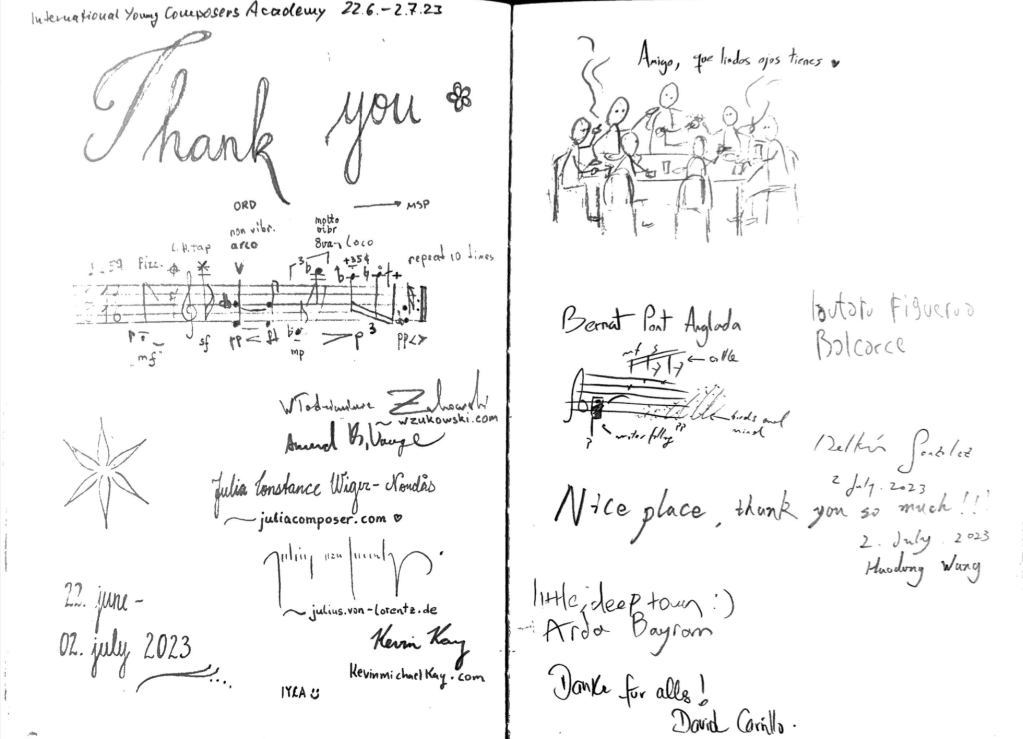 International Young Composers Academy 22.6.-2.7.23
Thank you
ORD
MSP
non vibr.
arco
molto
vibr
8va
Loco
L.H.tap
Pizz.
repeat 10 times
sf
pp
mf
mp
p
3
Zukowski
wzukowski.com
Julia Constance Wiger-Nordås
juliacomposer.com ♡
julius.von-lorentz.de
22. june -
02. july 2023
Kevin Kay
Kevinmichaelkay.com
IYCA
Amigo, que lindos ojos tienes ♥
Bernat Pont Anglada
Lautaro Figueroa
Balcarce
cattle
birds and
wind
water falling
2 July. 2023
Nice place, thank you so much!!!
2. July. 2023
Haodong Wang
little, deep town :)
Arda Bayram
Danke für alles!
David Carrillo.